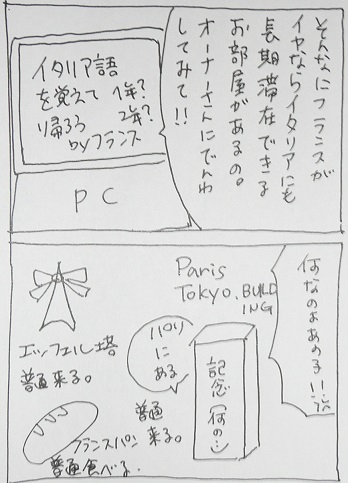 そんなにフランスが
イヤならイタリアにも
長期滞在できる
お部屋があるの。
オーナーさんにでんわ
してみて!!
イタリア語
を覚えて 1年?
帰ろう 2年?
byフランス
PC
何なのよあの子!!
Paris
Tokyo.BUILD
ING
パリ
にある
記念(何の…)
普通
来る。
エッフェル塔
普通来る。
フランスパン
普通食べる.